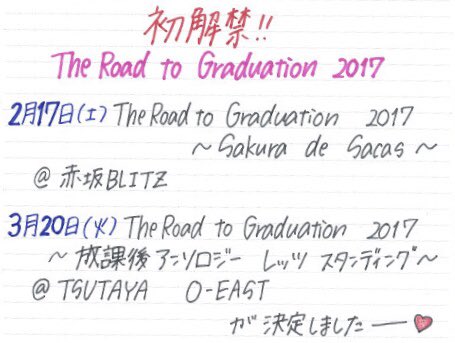 初解禁!!
The Road to Graduation 2017
2月17日(土) The Road to Graduation 2017
~ Sakura de Sacas ~
@ 赤坂BLITZ
3月20日(火) The Road to Graduation 2017
~ 放課後アンソロジー レッツ スタンディング~
@ TSUTAYA O-EAST
が決定しましたー♥